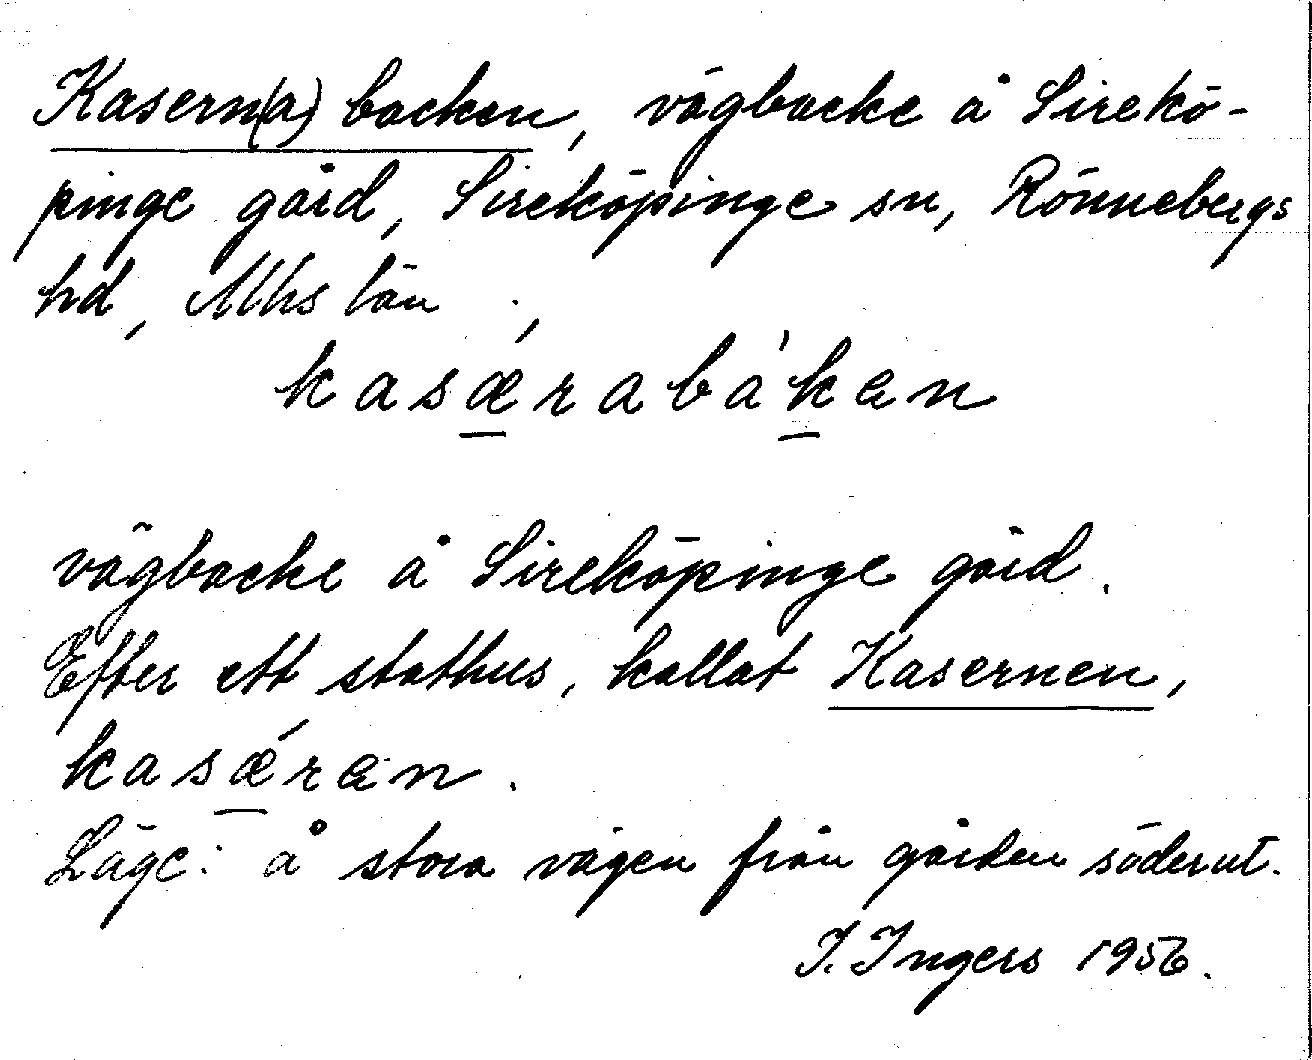 Kasern(a)backen, vägbacke å Sirekö-
pinge gård, Sireköpinge sn, Rönnebergs
hd, Mlhs län.
kasǽrabáken
vägbacke å Sireköpinge gård.
Efter ett stathus, kallat Kasernen,
kasǽren.
Läge: å stora vägen från gården söderut.
I. Ingers 1956.